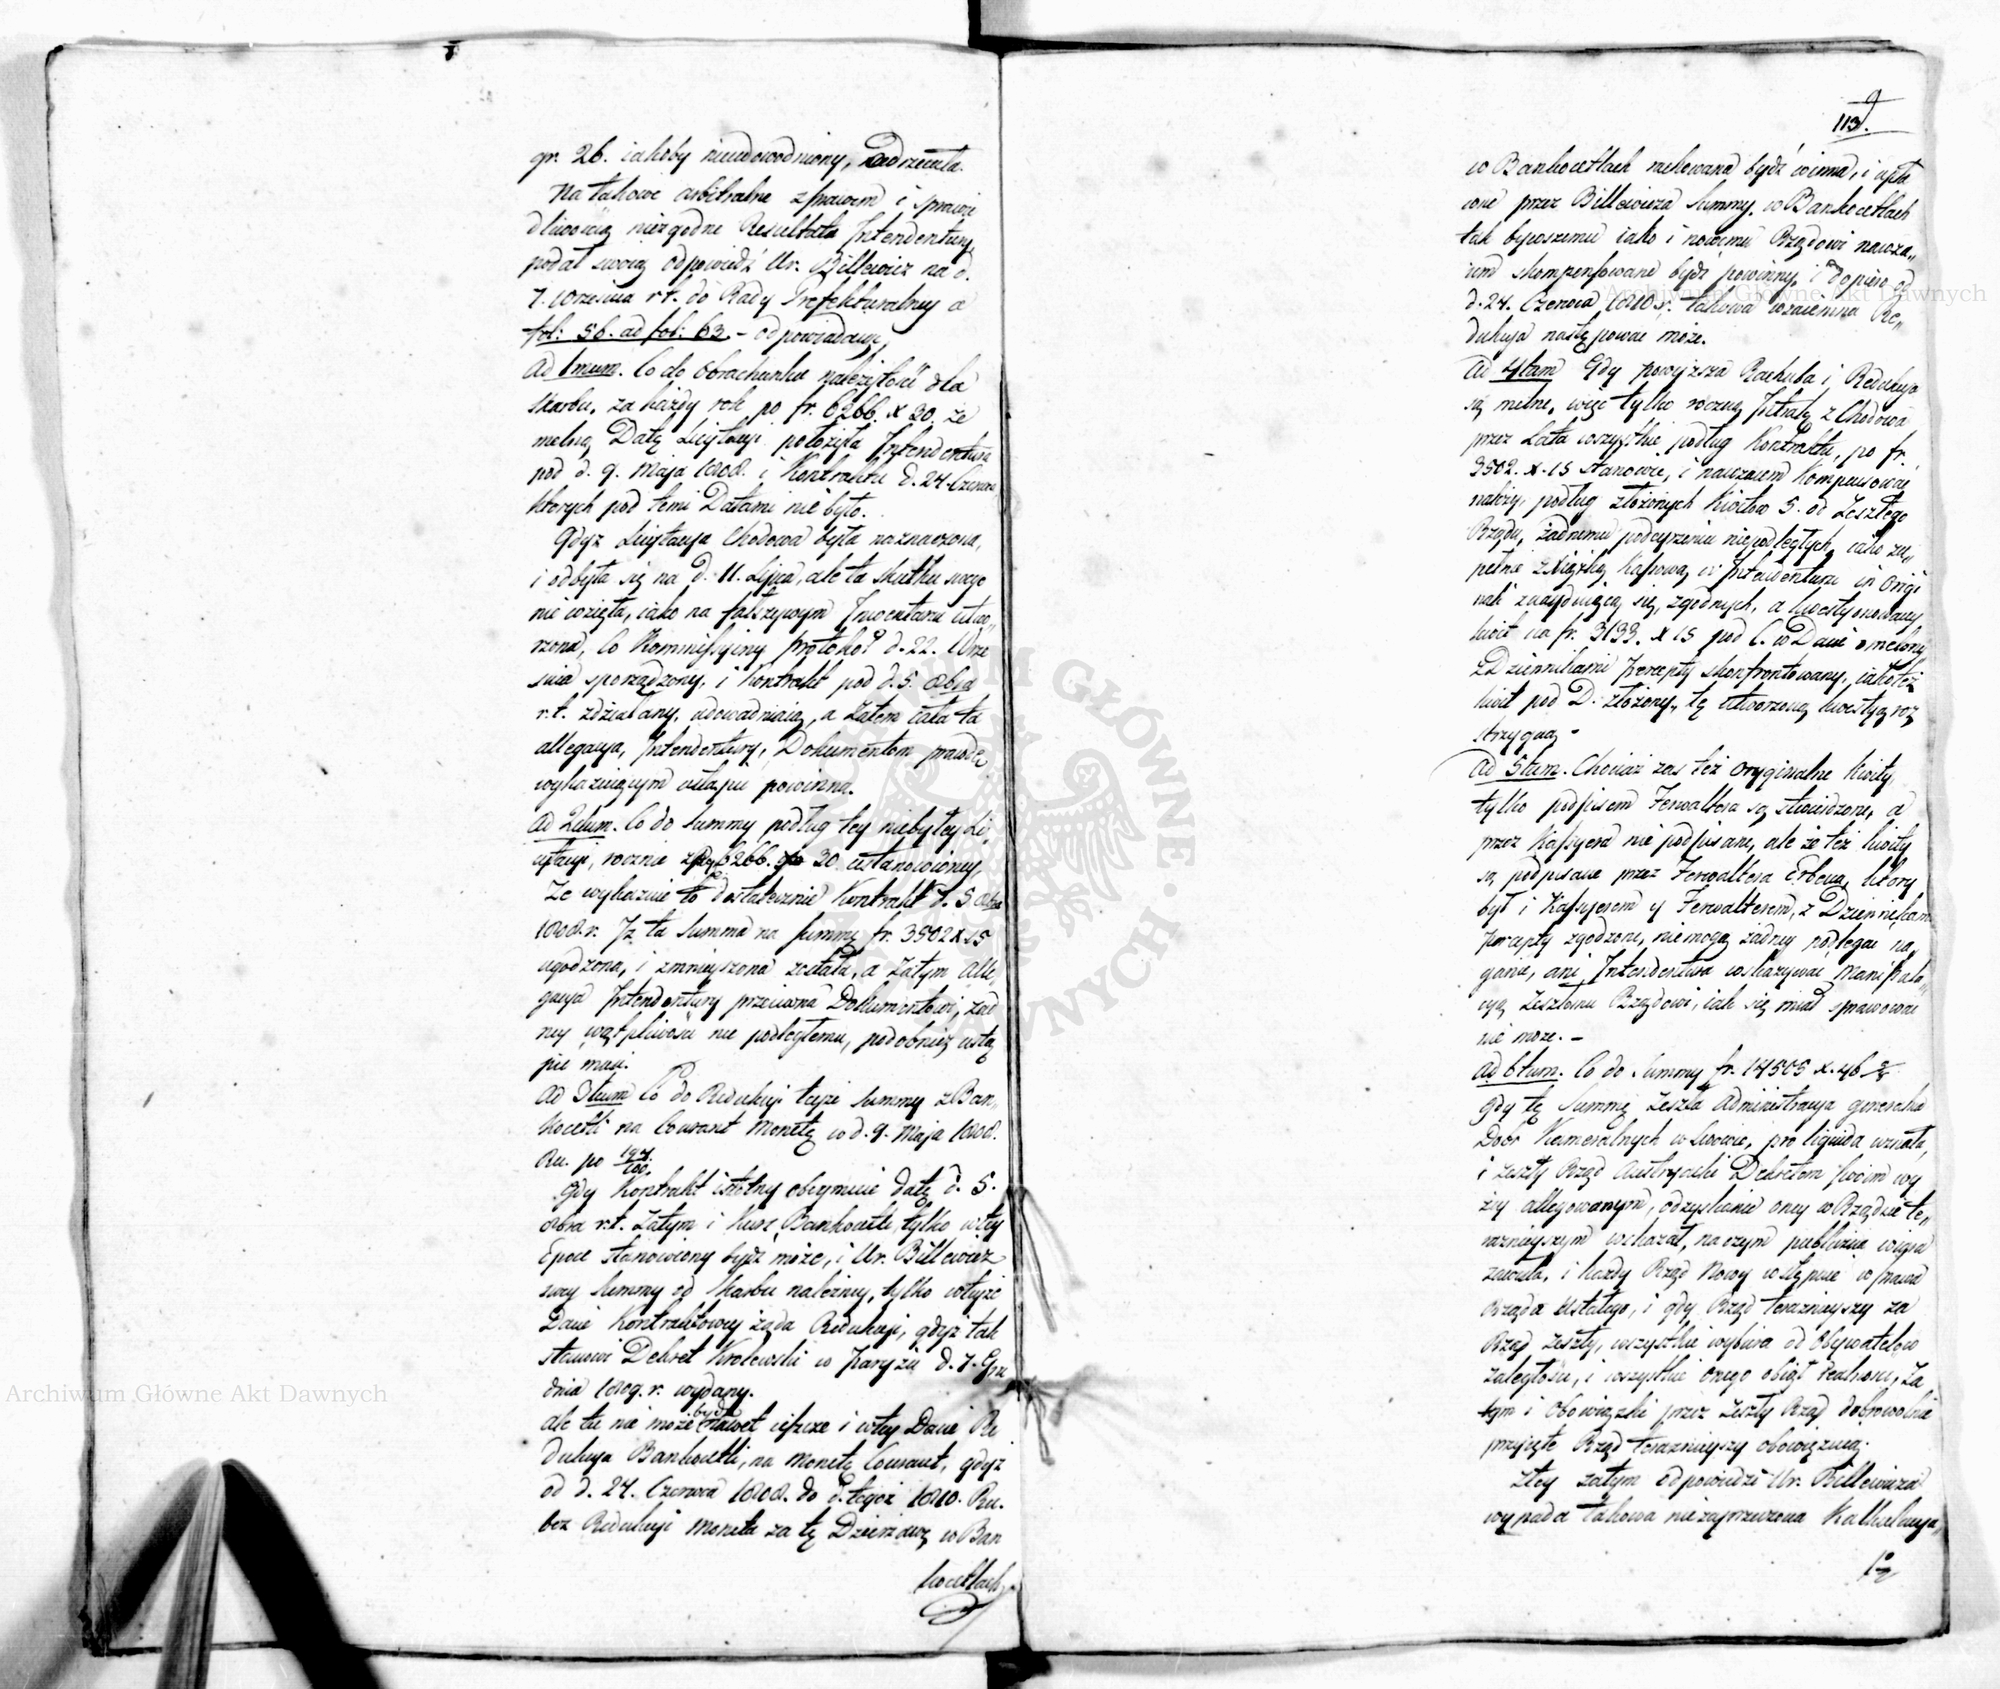 gr. 26. iakoby nieudowodniony, odrzucała.
Na takowe arbitralne z prawem i sprawie
dliwością niezgodne Resultata Intendentury,
podał swoią odpowiedź Ur. Billewicz na d.
7. Września r. t. do Rady Prefekturalney a
fol: 56. ad fol: 63. – odpowiadaiąc,
Ad 1mum. Co do obrachunku należytości dla
Skarbu, za każdy rok po fr. 6266. x 30. że
mylną Datę Licytacyi położyła Intendentura
pod d. 9. Maja 1808. i Kontraktu d. 24. Czerwca
których pod temi Datami nie było.
Gdyż Licytacya Chodowa była naznaczona,
i odbyła się na d. 11. Lipca, ale ta skutku swego
nie wzięła, iako na fałszywym Inwentarzu utwo„
rzona, Co Kommissyiny protokół d. 22. Wrze
śnia sporządzony, i Kontrakt pod d. 5. 8bra
r. t. zdziałany, udowadniaią, a Zatem cała ta
allegacya, Intendentury, Dokumentom prawdę
wykazuiącym ustąpić powinna.
Ad 2dum. Co do Summy podług tey niebyłey Li„
cytacyi, rocznie 6266. 30 ustanowioney,
Że wykazuie to dostatecznie Kontrakt d. 5 8bra
1808. r. Iż ta Summa na summę fr. 3502 x 15
ugodzona, i zmnieyszona została, a Zatym Alle
gacya Intendentury przeciwna Dokumentowi, żad
ney wątpliwości nie podległemu, podobnież ustą
pić musi.
Ad 3tium Co do Redukcyi teyże Summy z Ban„
kocetli na Courant Monetę w d. 9. Maja 1808.
Ru. po 194/100.
Gdy Kontrakt istotny obeymuie datę d. 5.
8bra r. t. Zatym i kurs Bankocetli tylko w tey
Epoce stanowiony bydź może, i Ur. Billewicz
swey Summy od Skarbu należney, tylko w teyże
Dacie Kontraktowey żąda Redukcyi, gdyż tak
stanowi Dekret Krolewski w Paryżu d. 7. Gru
dnia 1809. r. wydany.
ale tu nie może bydź nawet ieszcze i w tey Dacie Re
dukcya Bankocetli, na Monetę Courant, gdyż
od d. 24. Czerwca 1808. do d. tegoż 1810. Ru.
bez Redukcyi Moneta za tę Dzierżawę w Ban
kocetlach
113.
w Bankocetlach rachowana bydź winna, i wpła
cone przez Billewicza Summy, w Bankocetlach
tak bywszemu iako i nowemu Rządowi nawza„
iem skompensowane bydź powinny, i dopiero od
d. 24. Czerwca 1810 r. takowa wzaiemna Re„
dukcya następować może.
Ad 4tam Gdy powyższa Rachuba i Redukcya
są mylne, więc tylko roczną Intratę z Chodowa
przez Lata wszystkie podług Kontraktu, po fr.
3502. x. 15 stanowić, i nawzaiem Kompensować
należy, podług złożonych Kwitow 5. od Zeszłego
Rządu, żadnemu podeyrzeniu niepodległych, iako zu„
pełnie z Księgką Kassową w Intendenturze in Origi
nali znayduiącą się, zgodnych, a kwestyonowany
kwit na fr. 3133. x 15 pod C. w Dacie omylony
z Dziennikami percepty skonfrontowany, iakoteż
kwit pod D. złożony„ tę utworzoną kwestyą roz
strzygaią –
Ad 5tum. Chociaż zaś też oryginalne Kwity
tylko podpisem Ferwaltera są stwierdzone, a
przez Kassyera nie podpisane, ale że też kwity
są podpisane przez Ferwaltera Erbena, który
był i Kassyerem y Ferwalterem, z Dziennikami
percepty zgodzone, nie mogą żadney podlegać na„
ganie, ani Intendentura wskazywać Manipula„
cyą Zeszłemu Rządowi, iak się miał sprawować
nie może. –
Ad 6tum. Co do Summy fr. 14505 x. 46
Gdy tę Summę zeszła Administracya generalna
Dobr Kameralnych w Lwowie, pro liquida uznała,
i zeszły Rząd Austryacki Dekretem swoim wy
żey allegowanym, odzyskanie oney w Rządzie te„
raznieyszym wskazał, na czym publiczna wiara
zawisła, i każdy Rząd Nowy wstępuie w prawa
Rządu Ustałego, i gdy Rząd teraznieyszy za
Rząd zeszły, wszystkie wybiera od Obywatelow
zaległości, i wszystkie onego obiął Realności, za
tym i Obowiązki przez zeszły Rząd dobrowolnie
przyięte Rząd teraznieyszy obowięzuią.
Z tey zatym odpowiedzi Ur. Billewicza
wypada takowa niezaprzeczona Kalkulacya,
1o